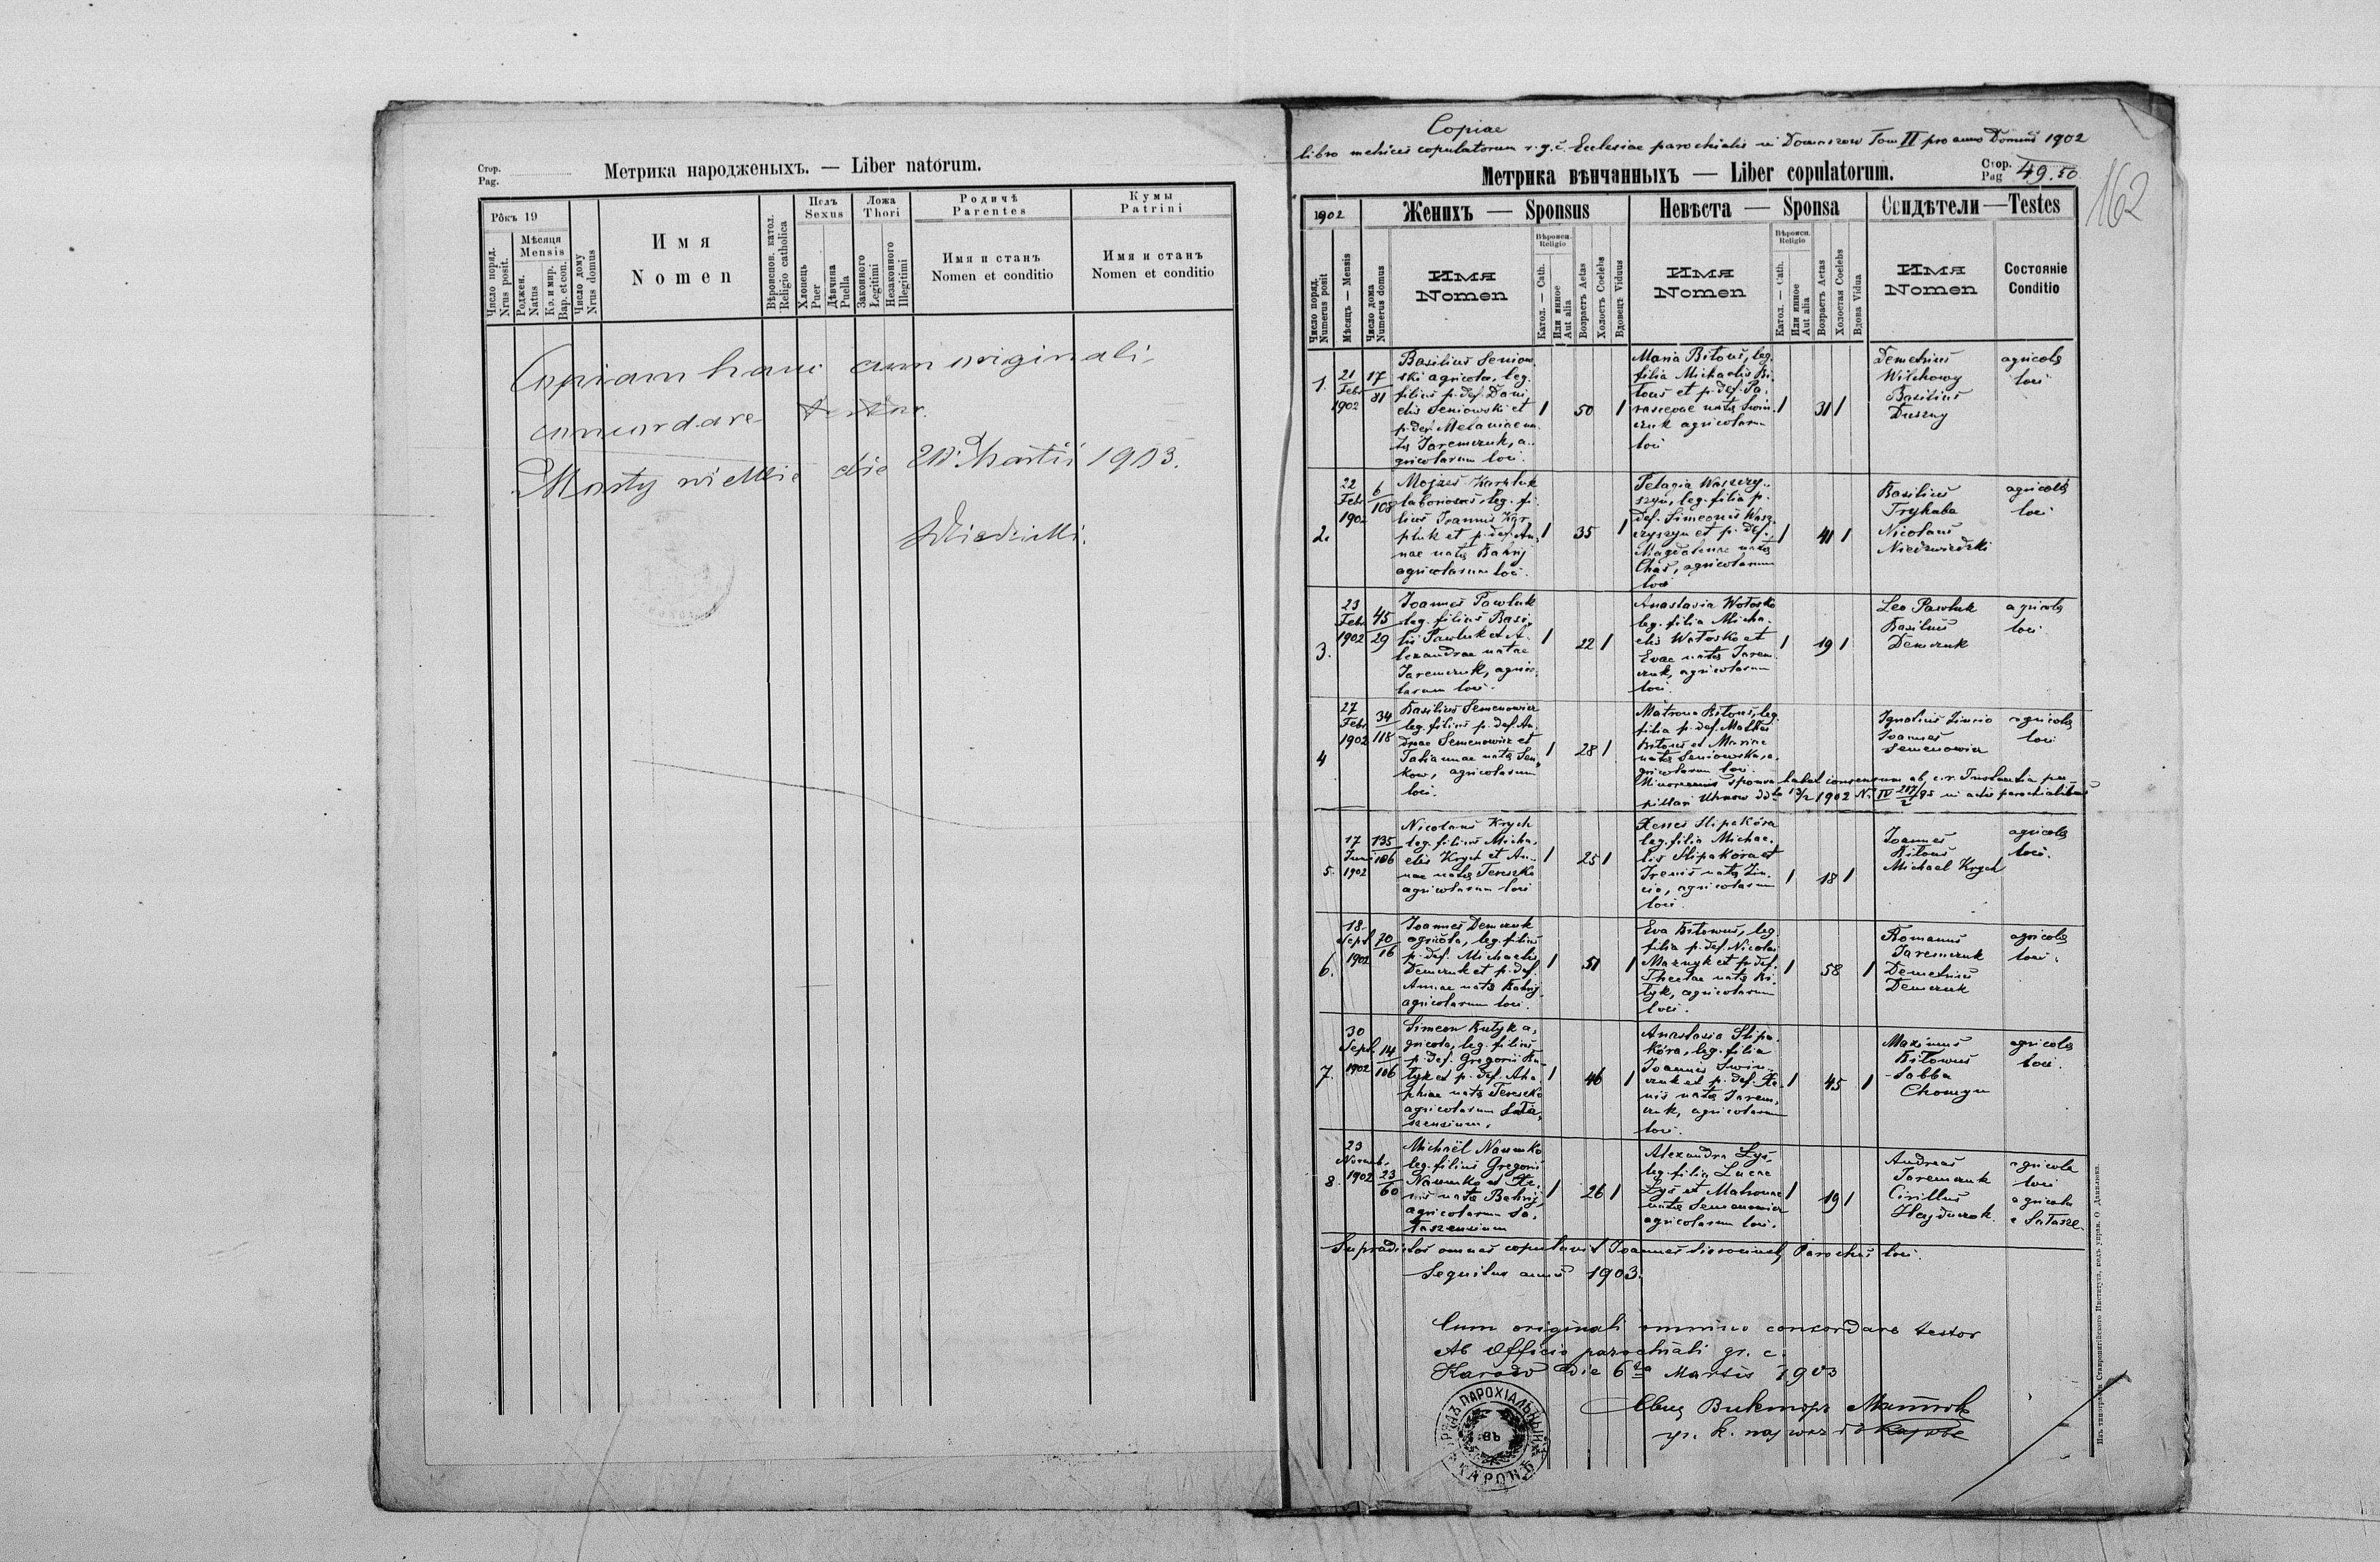 Стор.
Pag.
Метрика народженыхъ. — Liber natorum.
Рôкъ 19
Число поряд.
Nrus posit.
Мѣсяця
Mensis
Роджен.
Natus
Кр. и мир.
Bap. et con.
Число дому
Nrus domus
Имя
Nomen
Вѣроиспов. катол.
Religio catholica
Полъ
Sexus
Хлопець
Puer
Дѣвчина
Puella
Ложа
Thori
Законного
Legitimi
Незаконного
Illegitimi
Родичѣ
Parentes
Имя и станъ
Nomen et conditio
Кумы
Patrini
Имя и станъ
Nomen et conditio
Copiam hanc cum originali
concordare
Mosty wielkie die Martii 1903.
Copiae
libro metrices copulatorum r. g. c. Ecclesiae parochialis in Domaszow Tom II pro anno Domini 1902
Метрика вѣнчанныхъ — Liber copulatorum.
Стор.
Pag 49.50
162
1902
Женихъ — Sponsus
Невѣста — Sponsa
Свидѣтели — Testes
Число поряд.
Numerus posit
Мѣсяцъ — Mensis
Число дома
Numerus domus
Имя
Nomen
Вѣроисп.
Religio
Катол. — Cath.
Или инное
Aut alia
Возрастъ Aetas
Холостъ Coelebs
Вдовецъ Viduus
Имя
Nomen
Вѣроисп.
Religio
Катол. — Cath.
Или инное
Aut alia
Возрастъ Aetas
Холостая Coelebs
Вдова Vidua
Имя
Nomen
Состояніе
Conditio
1.
21
Febr
1902
17
81
Basilius Seniow
ski agricola, leg.
filius p. def. Dani
elis Seniowski et
p. def. Melaniae na
tae Jaremczuk, a
gricolarum loci.
1 50 1
Maria Bitous, leg.
filia Michaelis Bi
tous et p. def. Pa
rascevae natae Swin
czuk agricolarum
loci
1 31 1
Demetrius
Wilchowy
Basilius
Duszny
agricolae
loci
2.
22
Febr
1902
6
108
Mojzes Karpluk
laboriosus, leg. fi
lius Joannis Kar
pluk et p. def. An
nae natae Bahrij
agricolarum loci.
1 35 1
Pelagia Waszczy
szyn, leg. filia p.
def. Simeonis Wasz
czyszyn et p. def.
Magdalenae natae
Chas, agricolarum
loci
1 41 1
Basilius
Trykaba
Nicolaus
Niedzwiedzki
agricolae
loci
3.
23
Febr
1902
45
29
Joannes Pawluk
leg. filius Basi
lii Pawluk et A
lexandrae natae
Jaremczuk, agrico
larum loci.
1 22 1
Anastasia Wołosko
leg. filia Micha
elis Wołosko et
Evae natae Jarem
czuk, agricolarum
loci.
1 19 1
Leo Pawluk
Basilius
Demczuk
agricolae
loci
4
27
Febr
1902
34
118
Basilius Semenowicz
leg. filius p. def. An
dreae Semenowicz et
Tatiannae natae Sen
kow, agricolarum
loci.
1 28 1
Matrona Bitous, leg.
filia p. def. Mathei
Bitous et Mariae
natae Seniowska, a
gricolarum loci.
Ignatius Zincio
Joannes
Semenowicz
agricolae
loci
Minorennis sponsa habet consensum ab c. r. Instantia pu
pillari Uhnow ddto 13/2 1902 N. IV 217/2 95 in actis parochialibus
5.
17
Juni
1902
135
106
Nicolaus Krych
leg. filius Micha
elis Krych et An
nae natae Tereszko
agricolarum loci
1 25 1
Xenes Slipakóra
leg. filia Michae
lis Slipakóra et
Irenis natae Zin
cio, agricolarum
loci.
1 18 1
Joannes
Bitous
Michael Krych
agricolae
loci.
6.
18
Sept
1902
70
16
Joannes Demczuk
agricola, leg. filius
p. def. Michaelis
Demczuk et p. def.
Annae natae Bahrij
agricolarum loci.
1 51 1
Eva Bitowus, leg.
filia p. def. Nicolai
Maznyk et p. def.
Theclae natae Ki
tyk, agricolarum
loci.
1 58 1
Romanus
Jaremczuk
Demetrius
Demczuk
agricolae
loci.
7.
30
Sept.
1902
14
106
Simeon Kutyk a
gricola, leg. filius
p. def. Gregorii Ku
tyk et p. def. Aha
phiae natae Tereszko
agricolarum Sała
szensium.
1 46 1
Anastasia Slipa
kóra, leg. filia
Joannes Swin
czuk et p. def. Xe
nis natae Jarem
czuk, agricolarum
loci.
1 45 1
Maximus
Bitowus
Sabba
Chomyn
agricolae
loci.
8.
23
Novemb.
1902
23
60
Michaël Naumko
leg. filius Gregorii
Naumko et Xe
nis natae Bahrij,
agricolarum Sa
łaszensium
1 26 1
Alexandra Łyś
leg. filia Lucae
Łyś et Matronae
natae Semenowicz
agricolarum loci.
1 19 1
Andreas
Jaremczuk
Cirillus
Hajduczok.
agricola
loci
agricola
e Sałasze.
Supradictos omnes copulavit Joannes Parochus loci.
Sequitur annus 1903.
Cum originali omnino concordare testor
Ab Officio parochiali gr. c.
Karów die 6ta Martis 1903
Викторъ
УРЯДЪ ПАРОХІАЛЬНЫЙ
ВЪ
КАРОВѢ
Изъ типографіи Ставропигійского Института, подъ управ. О. Данилюка.